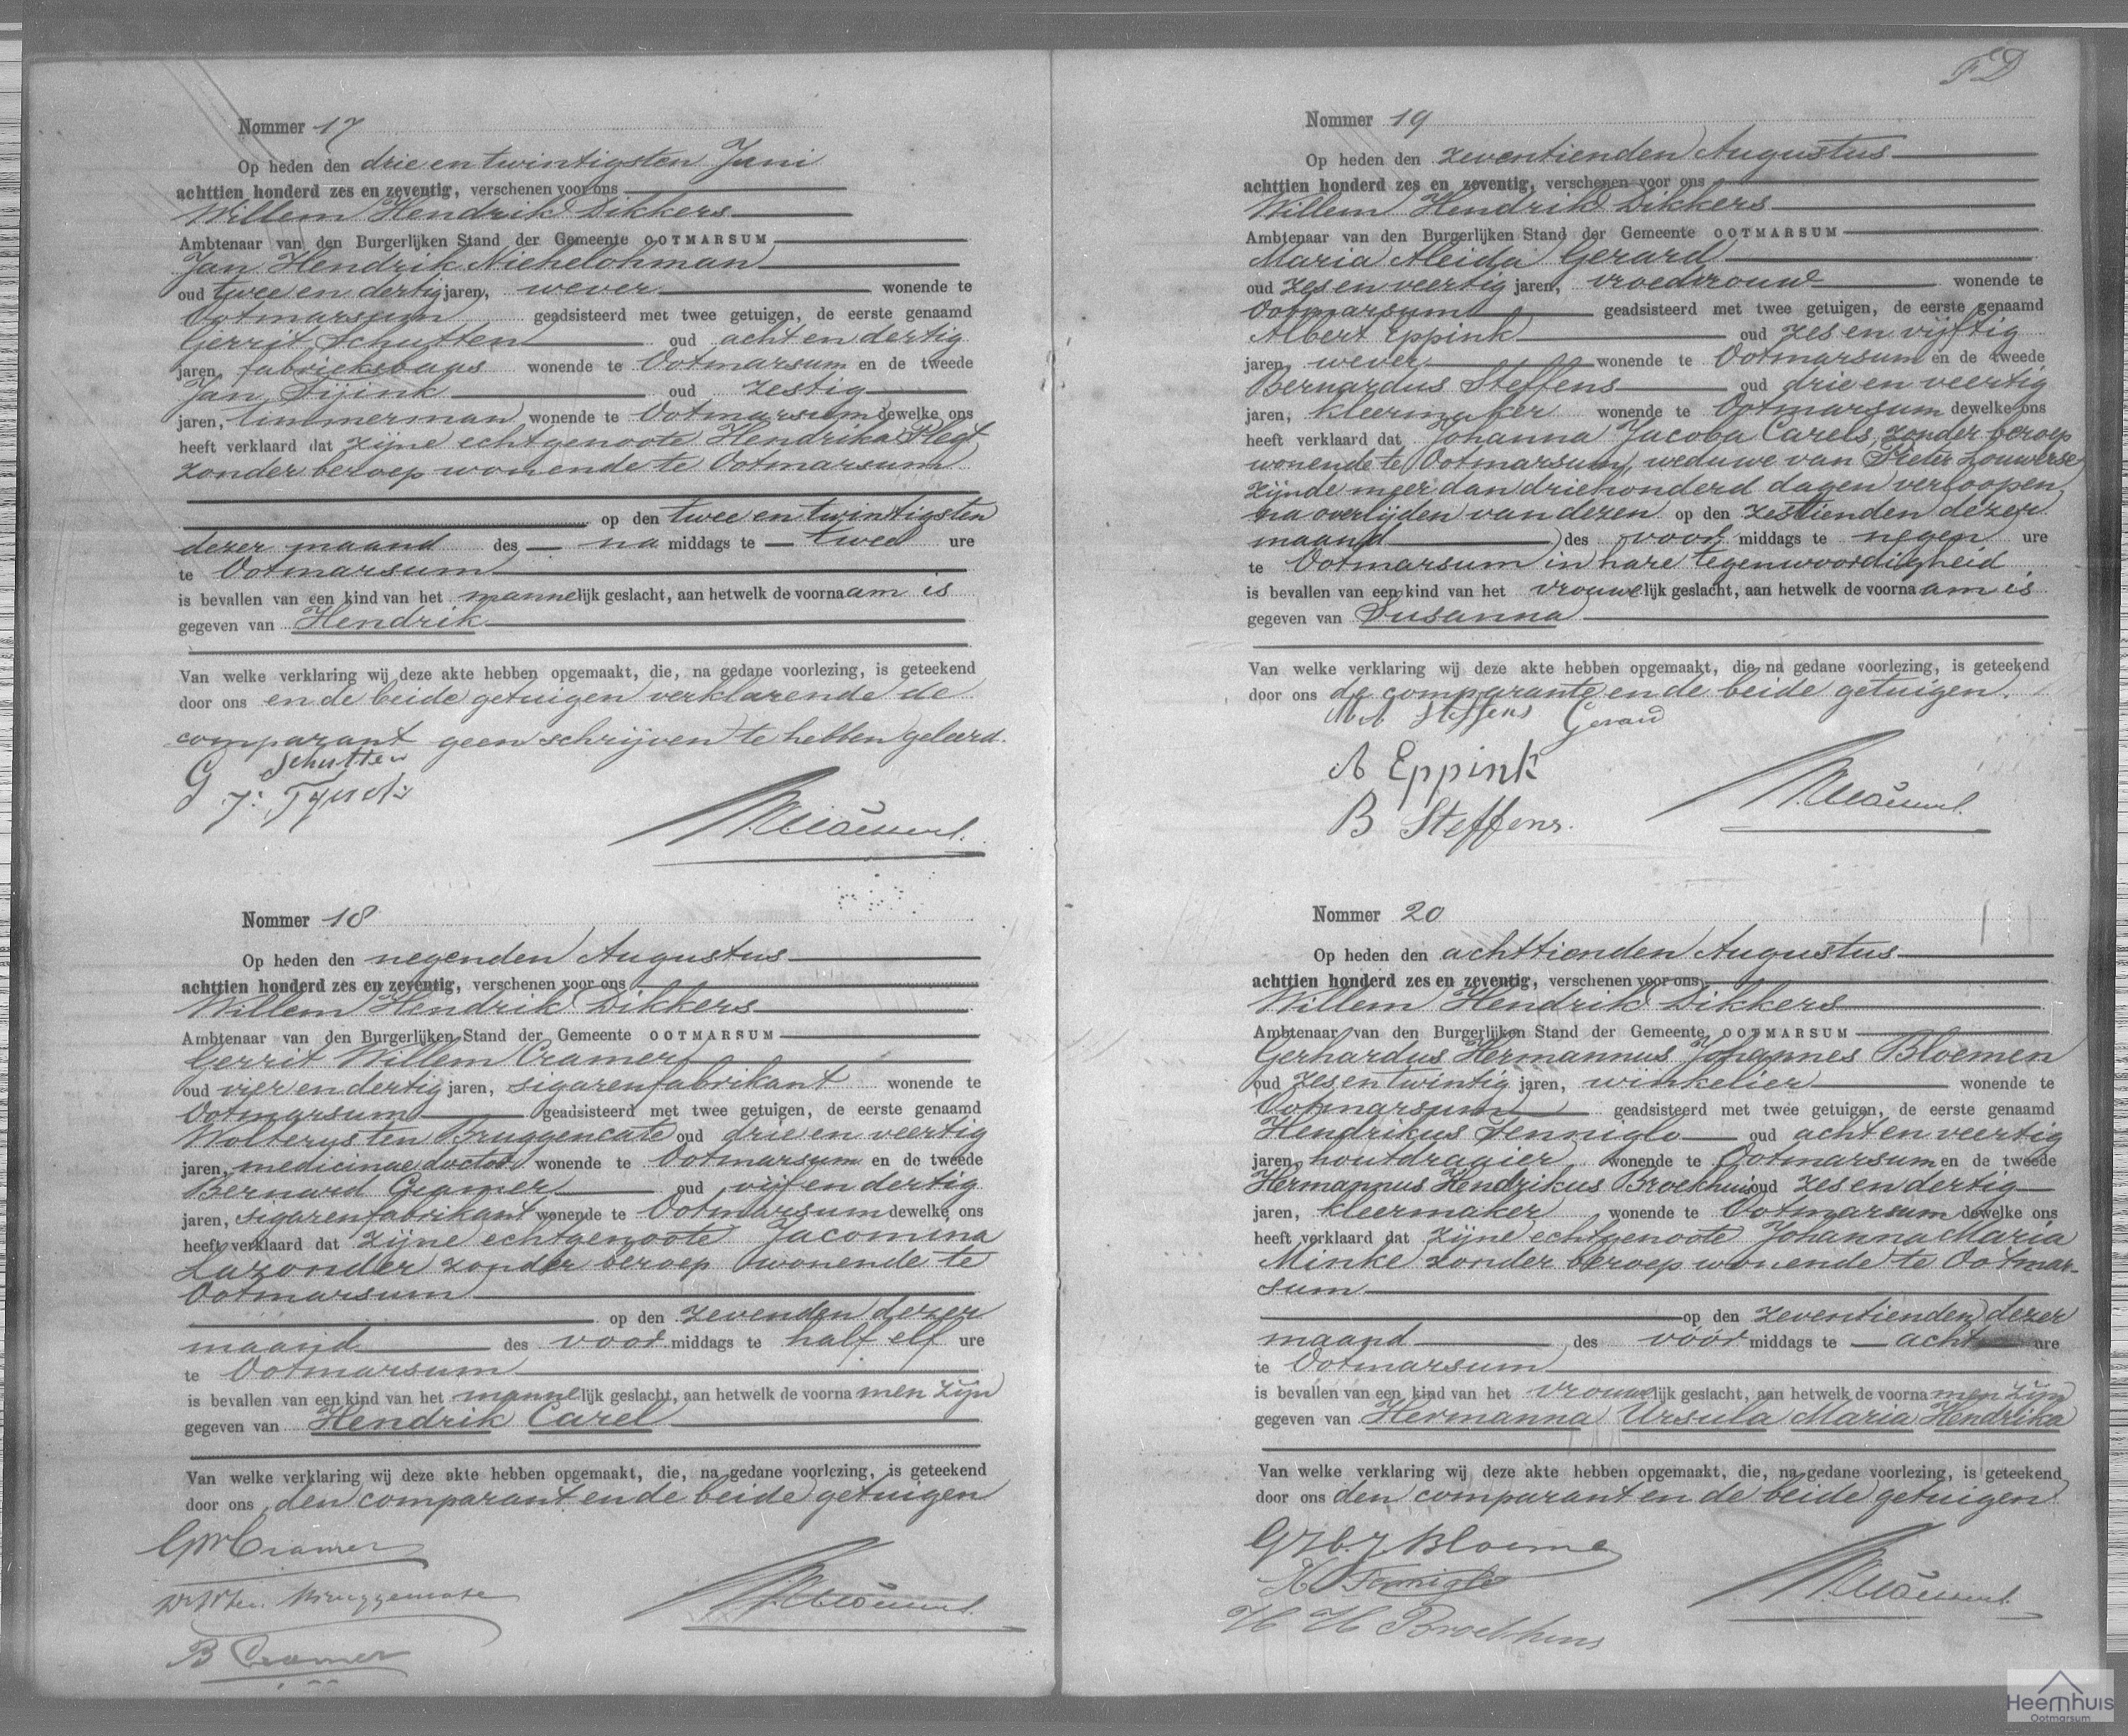 Nommer 17
Op heden den drie en twintigsten Juni
achttien honderd zes en zeventig, verschenen voor ons
Willem Hendrik Dikkers
Ambtenaar van den Burgerlijken Stand der Gemeente OOTMARSUM
Jan Hendrik Niehelohman
oud twee en dertig jaren, wever wonende te
Ootmarsum geadsisteerd met twee getuigen, de eerste genaamd
Gerrit Schutten oud acht en dertig
jaren, fabrieksbaas wonende te Ootmarsum en de tweede
Jan Tijink oud zestig
jaren, timmerman wonende te Ootmarsum dewelke ons
heeft verklaard dat zijne echtgenoote Hendrika Plegt
zonder beroep wonende te Ootmarsum
op den twee en twintigsten
dezer maand des na middags te twee ure
te Ootmarsum
is bevallen van een kind van het mannelijk geslacht, aan hetwelk de voornaam is
gegeven van Hendrik
Van welke verklaring wij deze akte hebben opgemaakt, die, na gedane voorlezing, is geteekend
door ons en de beide getuigen verklarende de
comparant geen schrijven te hebben geleerd.
G Schutten
J: Tijink
Nommer 18
Op heden den negenden Augustus
achttien honderd zes en zeventig, verschenen voor ons
Willem Hendrik Dikkers
Ambtenaar van den Burgerlijken Stand der Gemeente OOTMARSUM
Gerrit Willem Cramer
oud vier en dertig jaren, sigarenfabrikant wonende te
Ootmarsum geadsisteerd met twee getuigen, de eerste genaamd
Wolterus ten Bruggencate oud drie en veertig
jaren, medicinae doctor wonende te Ootmarsum en de tweede
Bernard Cramer oud vijf en dertig
jaren, sigarenfabrikant wonende te Ootmarsum dewelke ons
heeft verklaard dat zijne echtgenoote Jacomina
Lazonder zonder beroep wonende te
Ootmarsum
op den zevenden dezer
maand des voor middags te half elf ure
te Ootmarsum
is bevallen van een kind van het mannelijk geslacht, aan hetwelk de voornamen zijn
gegeven van Hendrik Carel
Van welke verklaring wij deze akte hebben opgemaakt, die, na gedane voorlezing, is geteekend
door ons den comparant en de beide getuigen
GWCramer
Bruggencate
B Cramer
Nommer 19
Op heden den zeventienden Augustus
achttien honderd zes en zeventig, verschenen voor ons
Willem Hendrik Dikkers
Ambtenaar van den Burgerlijken Stand der Gemeente OOTMARSUM
Maria Aleida Gerard
oud zes en veertig jaren, vroedvrouw wonende te
Ootmarsum geadsisteerd met twee getuigen, de eerste genaamd
Albert Eppink oud zes en vijftig
jaren, wever wonende te Ootmarsum en de tweede
Bernardus Steffens oud drie en veertig
jaren, kleermaker wonende te Ootmarsum dewelke ons
heeft verklaard dat Johanna Jacoba Carels, zonder beroep
wonende te Ootmarsum, weduwe van Pieter Louwerse
zijnde meer dan driehonderd dagen verloopen
na overlijden van dezen op den zestienden dezer
maand des voor middags te negen ure
te Ootmarsum in hare tegenwoordigheid
is bevallen van een kind van het vrouwelijk geslacht, aan hetwelk de voornaam is
gegeven van Susanna
Van welke verklaring wij deze akte hebben opgemaakt, die, na gedane voorlezing, is geteekend
door ons de comparante en de beide getuigen.
M A Steffens Gerard
A Eppink
B Steffens.
Nommer 20
Op heden den achttienden Augustus
achttien honderd zes en zeventig, verschenen voor ons
Willem Hendrik Dikkers
Ambtenaar van den Burgerlijken Stand der Gemeente OOTMARSUM
Gerhardus Hermannus Johannes Bloemen
oud zes en twintig jaren, winkelier wonende te
Ootmarsum geadsisteerd met twee getuigen, de eerste genaamd
Hendrikus Fenniglo oud acht en veertig
jaren, houtdragier wonende te Ootmarsum en de tweede
Hermannus Hendrikus Broekhuis oud zes en dertig
jaren, kleermaker wonende te Ootmarsum dewelke ons
heeft verklaard dat zijne echtgenoote Johanna Maria
Minke zonder beroep wonende te Ootmar-
sum
op den zeventienden dezer
maand des vóór middags te acht ure
te Ootmarsum
is bevallen van een kind van het vrouwelijk geslacht, aan hetwelk de voornamen zijn
gegeven van Hermanna Ursula Maria Hendrika
Van welke verklaring wij deze akte hebben opgemaakt, die, na gedane voorlezing, is geteekend
door ons den comparant en de beide getuigen
G H J Bloemen
H Fenniglo
H H Broekhuis
Heemhuis
Ootmarsum